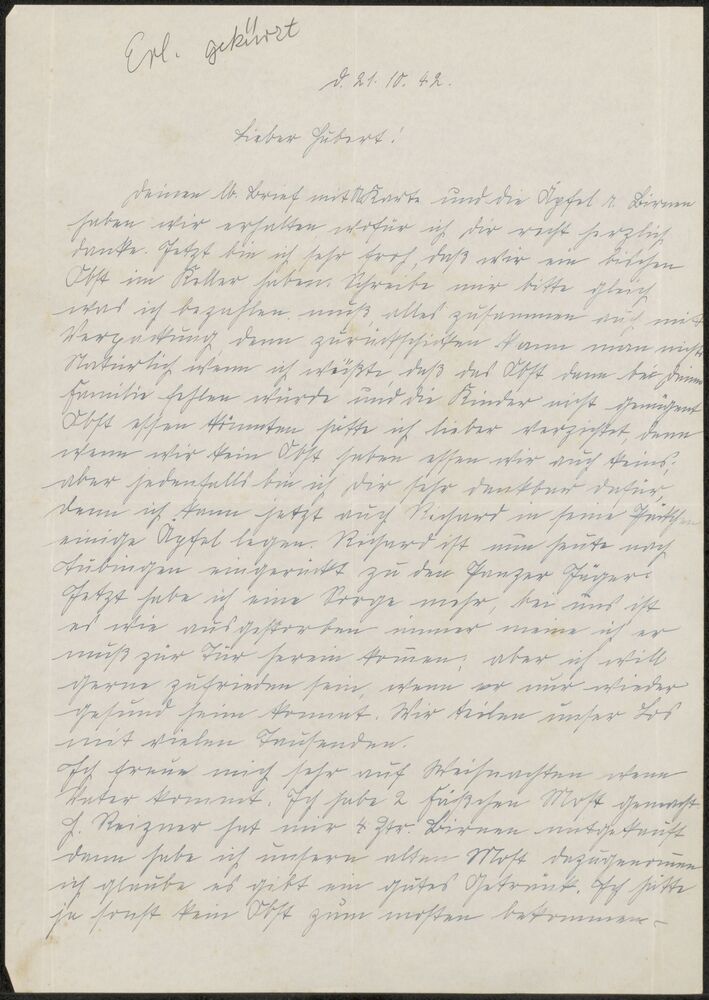 Erl. gekürzt
d. 21. 10. 42.
Lieber Hubert!
Deinen lb. Brief mit Karte und die Äpfel u. Birnen
haben wir erhalten wofür ich dir recht herzlich
danke. Jetzt bin ich sehr froh, daß wir ein bischen
Obst im Keller haben. Schreibe mir bitte gleich
was ich bezahlen muß alles zusammen auch mit
Verpackung denn zurückschicken kann man nicht
Natürlich wenn ich wüßte daß das Obst dann bei Deiner
Familie fehlen würde und die Kinder nicht genügent
Obst essen könnten hätte ich lieber verzichtet, denn
wenn wir kein Obst haben essen wir auch keins.
aber jedenfalls bin ich Dir sehr dankbar dafür,
denn ich kann jetzt auch Richard in seine Päckchen
einige Äpfel legen. Richard ist nun heute nach
Tübingen eingerückt zu den Panzer Jäger.
Jetzt habe ich eine Sorge mehr, bei uns ist
es wie ausgestorben immer meine ich er
muß zur Tür herein kommen; aber ich will
gerne zufrieden sein, wenn er nur wieder
gesund heim kommt. Wir teilen unser Los
mit vielen Tausenden.
Ich freue mich sehr auf Weihnachten wenn
Vater kommt. Ich habe 2 Fäßchen Most gemacht
H. Reizner hat mir 4 Ztr. Birnen mitgekauft
dann habe ich unsern alten Most dazugenommen
ich glaube es gibt ein gutes Getränk. Ich hätte
ja sonst kein Obst zum mosten bekommen-